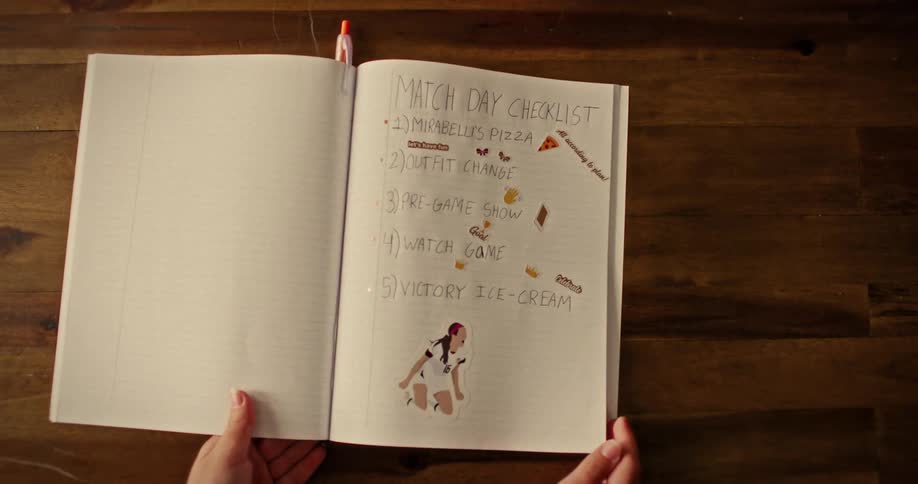 MATCH DAY CHECKLIST
1) MIRABELLI'S PIZZA
All according to plan!
let's have fun
2) OUTFIT CHANGE
3) PRE-GAME SHOW
Goal
4) WATCH GaME
Celebrate
5) VICTORY ICE-CREAM
16